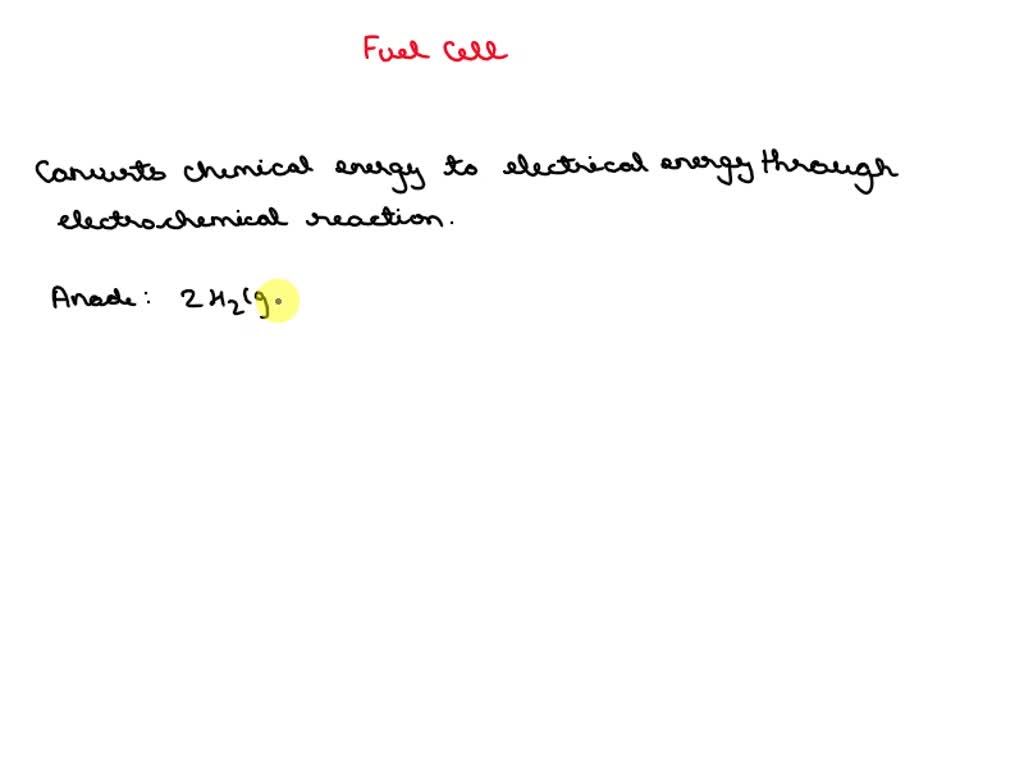 Fuel Cell
Converts chemical energy to electrical energy through
electrochemical reaction.
Anode: 2H₂(g